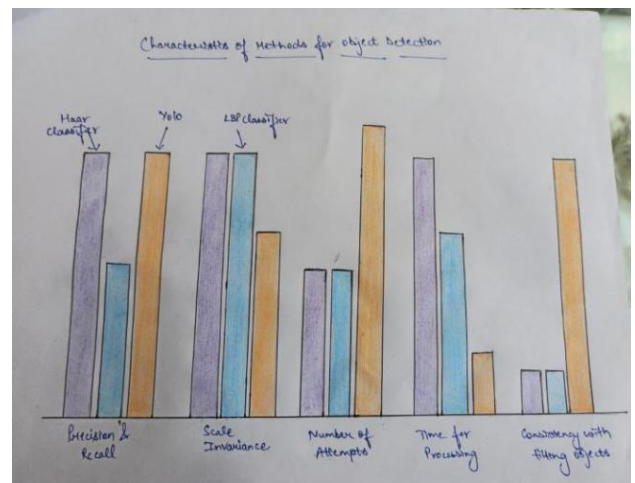 Characteristics of Methods for Object Detection
Haar
Classifier
Yolo
LBP Classifier
Precision &
Recall
Scale
Invariance
Number of
Attempts
Time for
Processing
Consistency with
filling objects